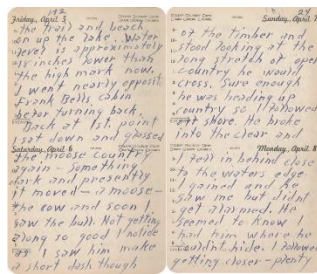 142
Friday, April 5
the trail and beach
on up the lake. Water
level is approximately
18 inches lower than
the high mark now.
I went nearly opposite
Frank Bells cabin
befor turning back.
Back at 1st. point
sat down and glassed
Saturday, April 6
the moose country
again - Something
dark and presently
it moved - a moose -
the cow and soon I
saw the bull. Not getting
along so good I notice
I saw him make
a short dash though
Sunday, April 7
of the timber and
stood looking at the
long stretch of open
country he would
cross. Sure enough
he was heading up
country so I followed
shore. He broke
into the clear and
Monday, April 8
I fell in behind close
to the waters edge.
I gained and he
saw me but didn't
get alarmed. He
seemed to know I
had him where he
couldn't hide. I followed
getting closer - plenty